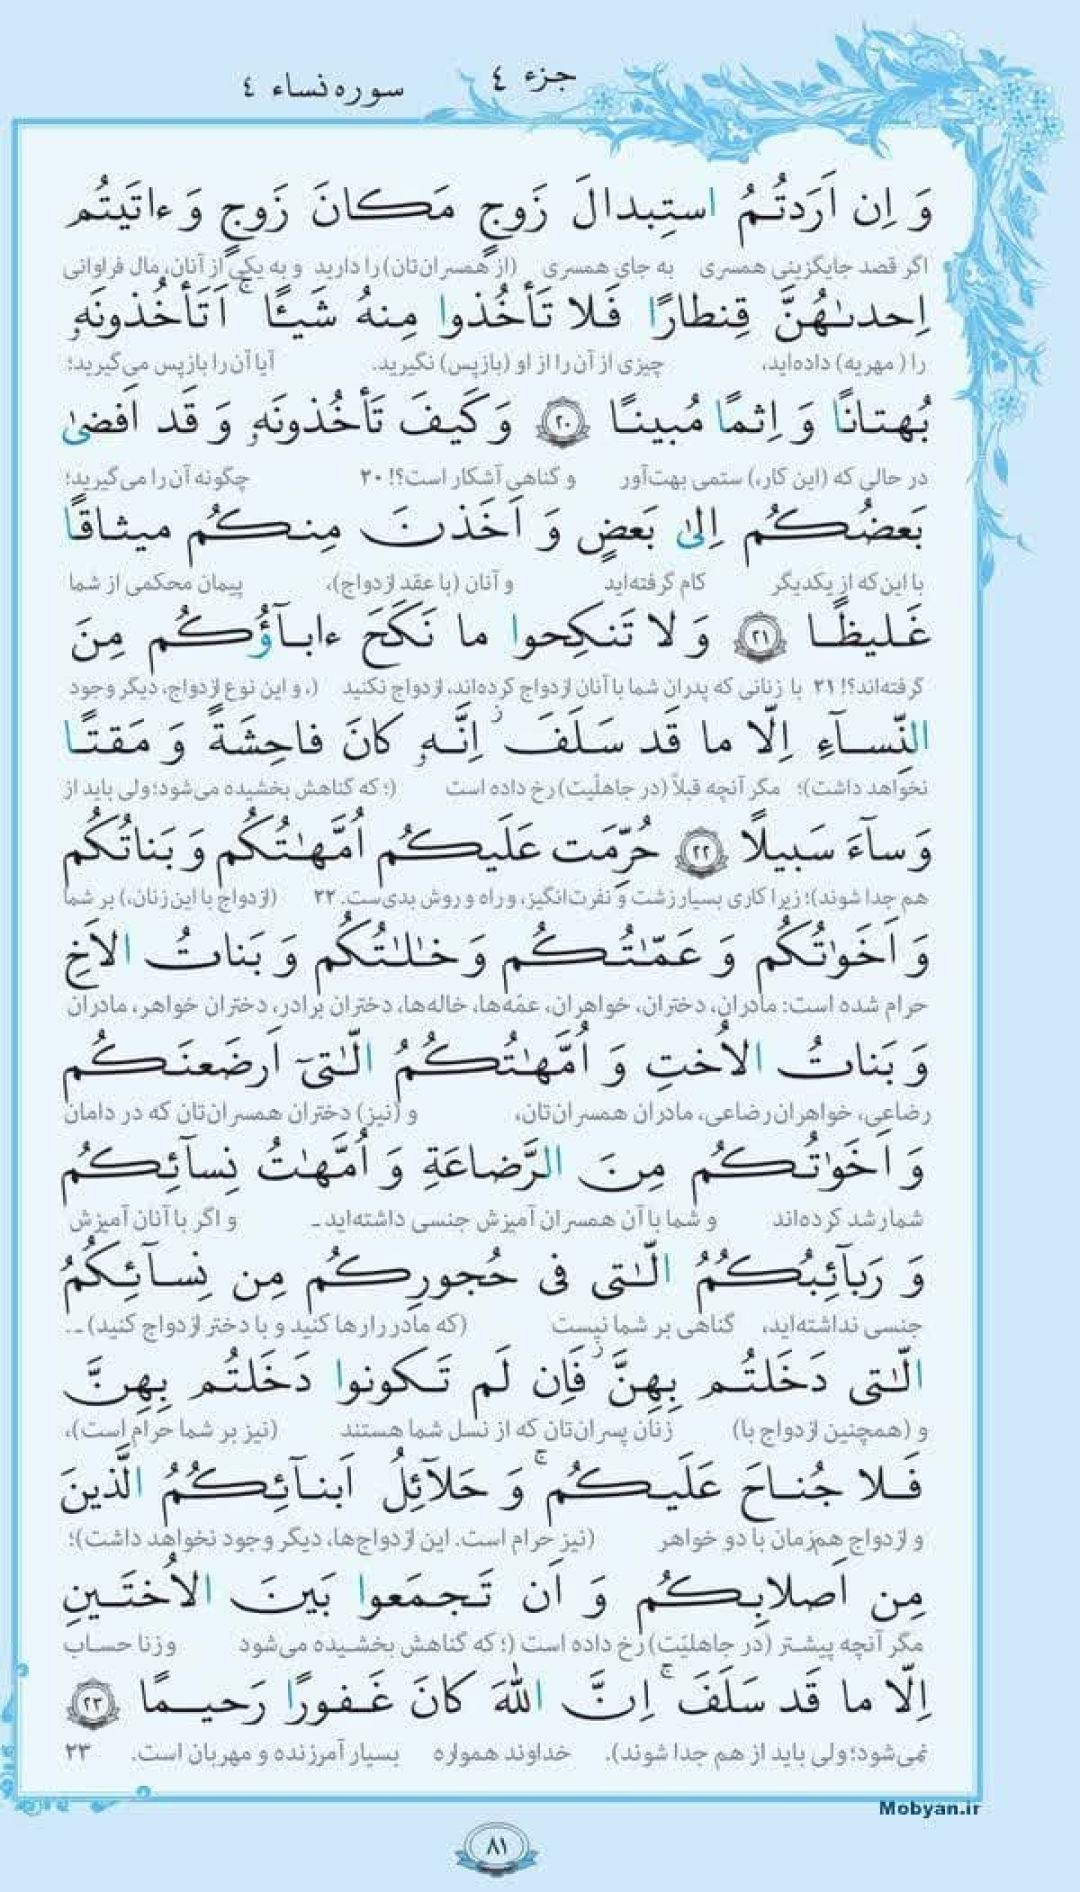 جزء ٤
سوره نساء ٤
وَ اِن اَرَدتُمُ استِبدالَ زَوجٍ مَكانَ زَوجٍ وَ ءاتَيتُم
اگر قصد جایگزینی همسری به جای همسری (از همسران‌تان) را دارید و به یکی از آنان، مال فراوانی
اِحدىٰهُنَّ قِنطارًا فَلا تَأخُذوا مِنهُ شَيـًٔا ۚ اَتَأخُذونَهٖ
را (مهریه) داده‌اید، چیزی از آن را از او (بازپس) نگیرید. آیا آن را بازپس می‌گیرید؛
بُهتانًا وَ اِثمًا مُبينًا ٢٠ وَ كَيفَ تَأخُذونَهٖ وَ قَد اَفضىٰ
در حالی که (این کار،) ستمی بهت‌آور و گناهی آشکار است؟! ۲۰ چگونه آن را می‌گیرید؛
بَعضُكُم اِلىٰ بَعضٍ وَ اَخَذنَ مِنكُم ميثاقًا
با این‌که از یکدیگر کام گرفته‌اید و آنان (با عقد ازدواج)، پیمان محکمی از شما
غَليظًا ٢١ وَ لا تَنكِحوا ما نَكَحَ ءابآؤُكُم مِنَ
گرفته‌اند؟! ۲۱ با زنانی که پدران شما با آنان ازدواج کرده‌اند، ازدواج نکنید (، و این نوع ازدواج، دیگر وجود
النِّسآءِ اِلّا ما قَد سَلَفَ ۚ اِنَّهٖ كانَ فاحِشَةً وَ مَقتًا
نخواهد داشت)؛ مگر آنچه قبلاً (در جاهلیّت) رخ داده است (؛ که گناهش بخشیده می‌شود؛ ولی باید از
وَ سآءَ سَبيلًا ٢٢ حُرِّمَت عَلَيكُم اُمَّهٰتُكُم وَ بَناتُكُم
هم جدا شوند)؛ زیرا کاری بسیار زشت و نفرت‌انگیز، و راه و روش بدی‌ست. ۲۲ (ازدواج با این زنان،) بر شما
وَ اَخَوٰتُكُم وَ عَمّٰتُكُم وَ خٰلٰتُكُم وَ بَناتُ الاَخِ
حرام شده است: مادران، دختران، خواهران، عمّه‌ها، خاله‌ها، دختران برادر، دختران خواهر، مادران
وَ بَناتُ الاُختِ وَ اُمَّهٰتُكُمُ الّٰتىٓ اَرضَعنَكُم
رضاعی، خواهران رضاعی، مادران همسران‌تان، و (نیز) دختران همسران‌تان که در دامان
وَ اَخَوٰتُكُم مِنَ الرَّضاعَةِ وَ اُمَّهٰتُ نِسآئِكُم
شما رشد کرده‌اند و شما با آن همسران آمیزش جنسی داشته‌اید ـ و اگر با آنان آمیزش
وَ رَبآئِبُكُمُ الّٰتى فى حُجورِكُم مِن نِسآئِكُمُ
جنسی نداشته‌اید، گناهی بر شما نیست (که مادر را رها کنید و با دختر ازدواج کنید) ـ.
الّٰتى دَخَلتُم بِهِنَّ ز فَاِن لَم تَكونوا دَخَلتُم بِهِنَّ
و (همچنین ازدواج با) زنان پسران‌تان که از نسل شما هستند (نیز بر شما حرام است)،
فَلا جُناحَ عَلَيكُم ۚ وَ حَلآئِلُ اَبنآئِكُمُ الَّذينَ
و ازدواج هم‌زمان با دو خواهر (نیز حرام است. این ازدواج‌ها، دیگر وجود نخواهد داشت)؛
مِن اَصلابِكُم وَ اَن تَجمَعوا بَينَ الاُختَينِ
مگر آنچه پیشتر (در جاهلیّت) رخ داده است (؛ که گناهش بخشیده می‌شود و زنا حساب
اِلّا ما قَد سَلَفَ ۚ اِنَّ اللّٰهَ كانَ غَفورًا رَحيمًا ٢٣
نمی‌شود؛ ولی باید از هم جدا شوند). خداوند همواره بسیار آمرزنده و مهربان است. ۲۳
Mobyan.ir
٨١